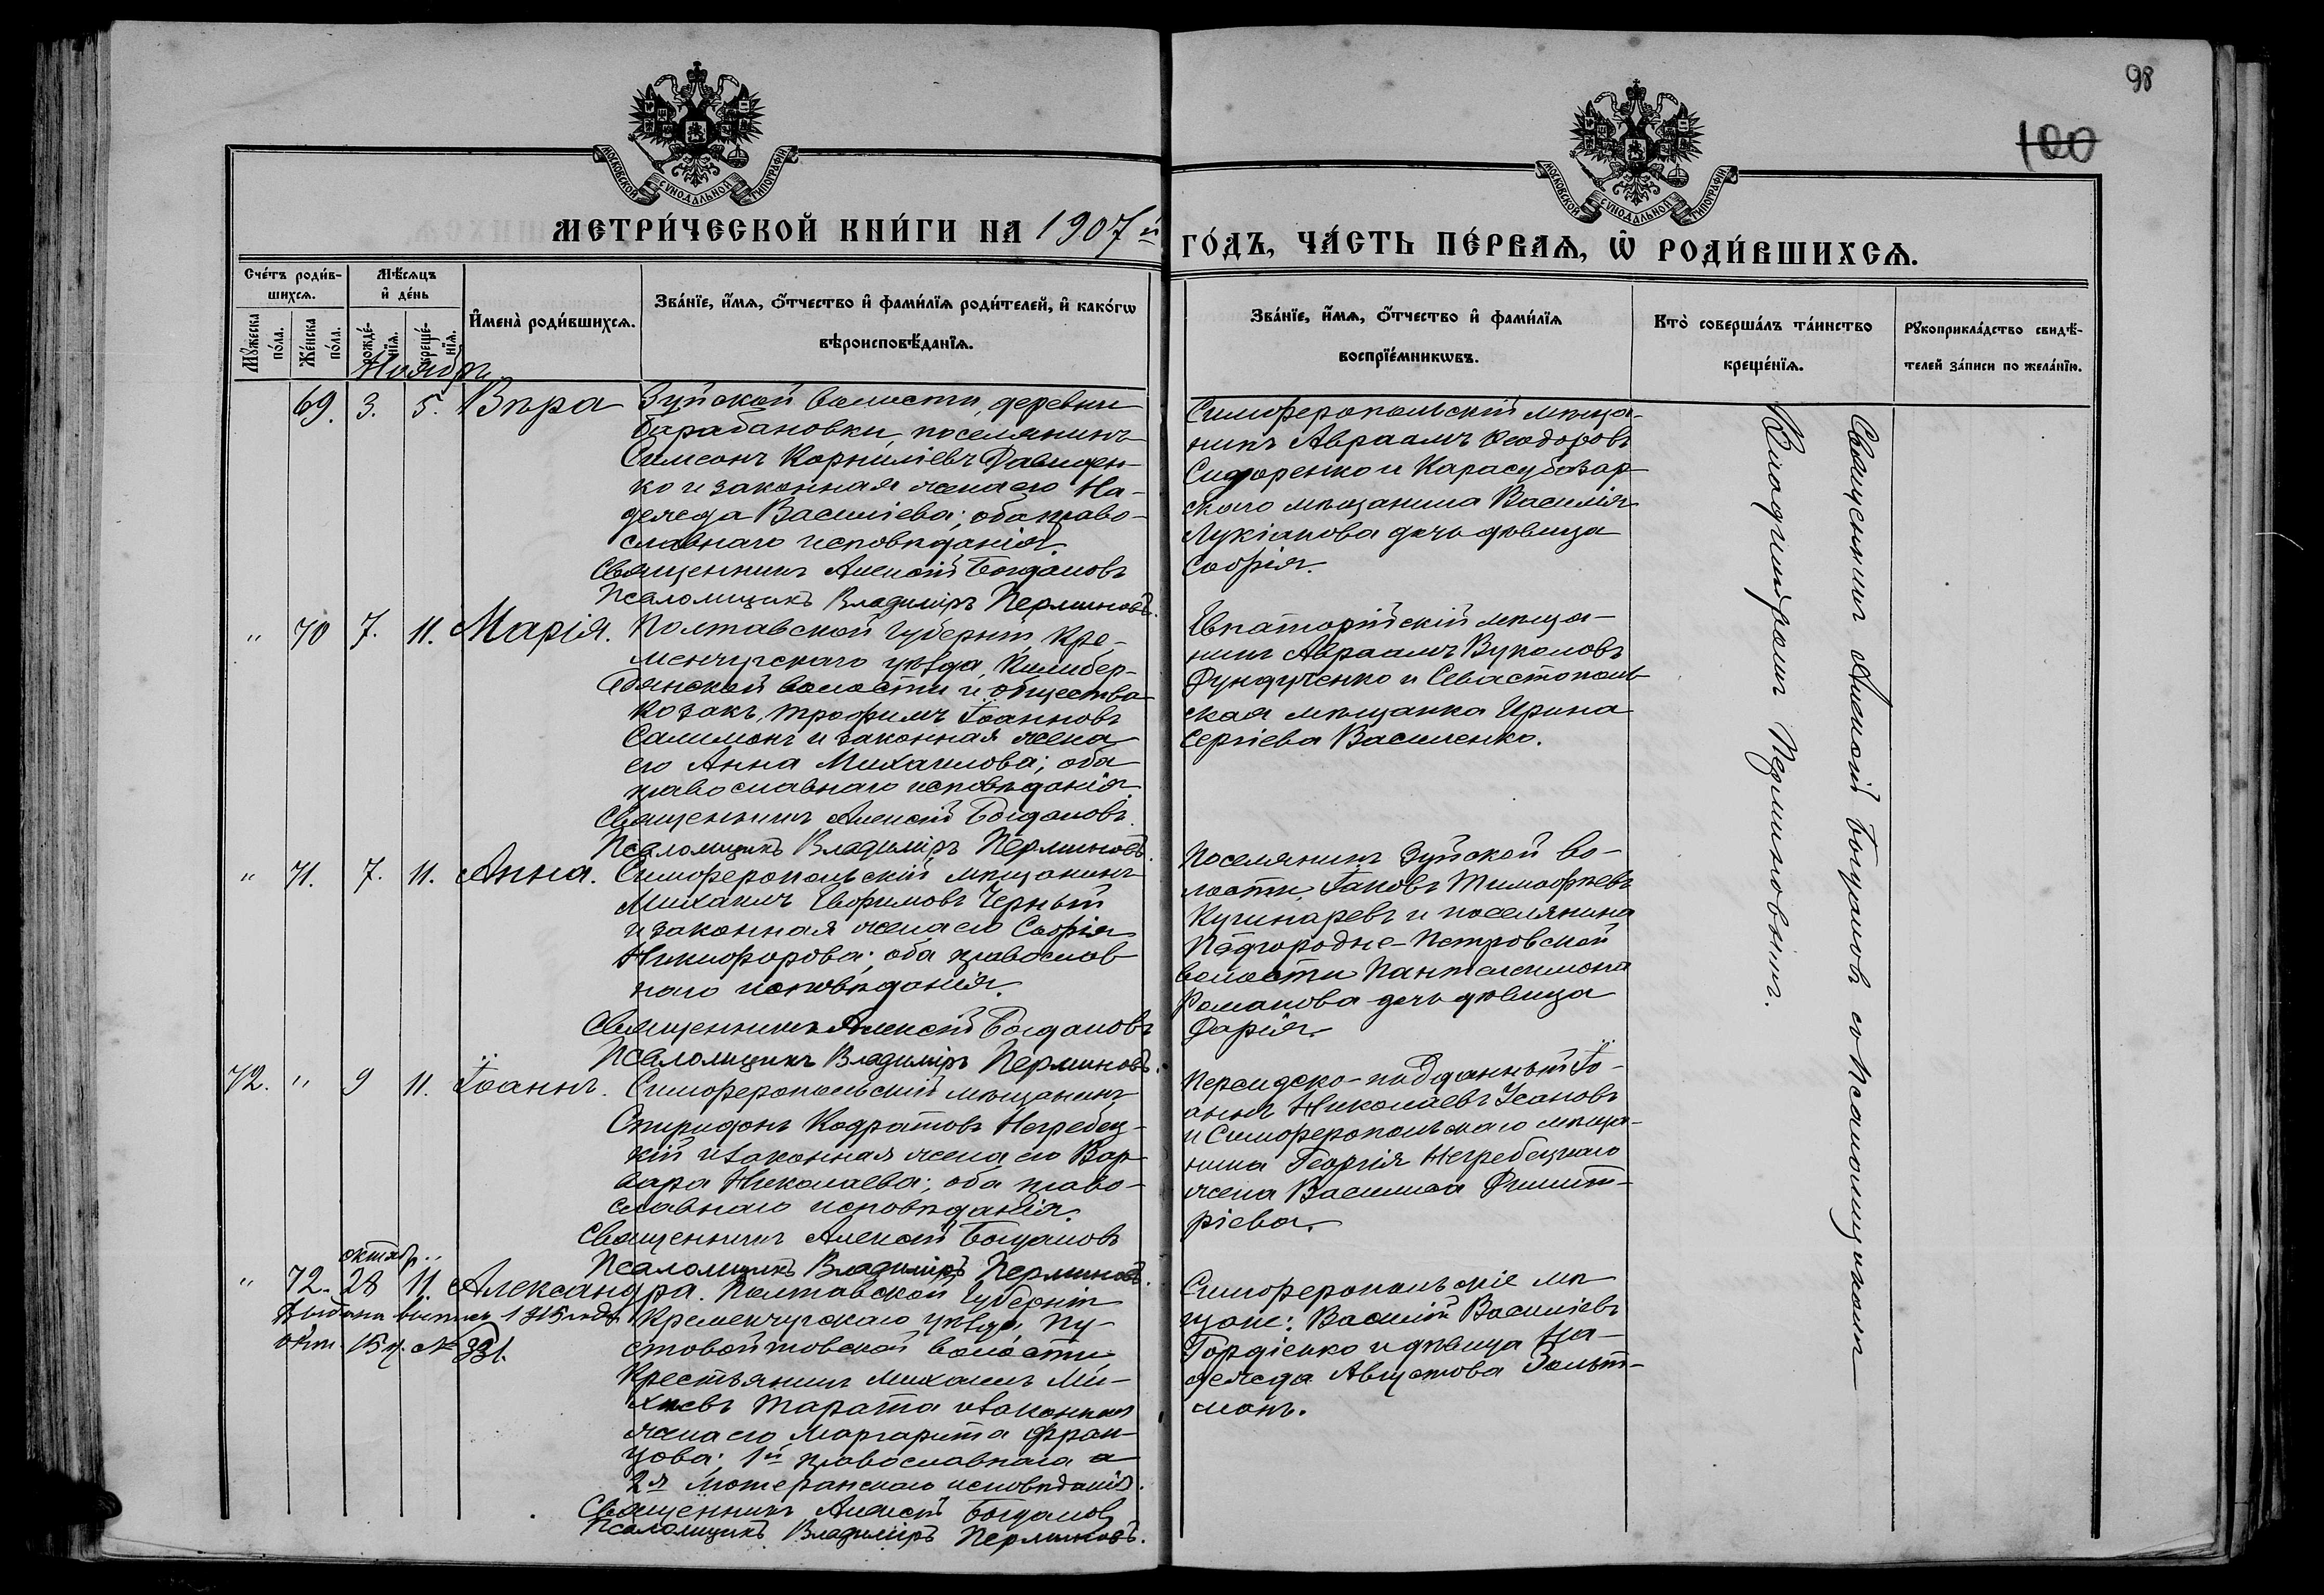 98
100
МОСКОВСКОЙ СѴНОДАЛЬНОЙ ТИПОГРАФІИ
МОСКОВСКОЙ СѴНОДАЛЬНОЙ ТИПОГРАФІИ
МЕТРИ́ЧЕСКОЙ КНИ́ГИ НА 1907й
ГО́ДЪ, ЧА́СТЬ ПЕ́РВАѦ, Ѿ РОДИ́ВШИХСѦ.
Сче́тъ роди́в-
шихсѧ.
Мꙋ́жеска по́ла.
Же́нска по́ла.
Мѣ́сѧцъ
и҆ де́нь
рожде́-
нїѧ.
креще́-
нїѧ.
И҆мена̀ роди́вшихсѧ.
Зва́нїе, и҆́мѧ, ѻ҆́тчество и҆ фами́лїѧ роди́телей, и҆ како́гѡ
вѣроисповѣ́данїѧ.
Зва́нїе, и҆́мѧ, ѻ҆́тчество и҆ фами́лїѧ
воспрїе́мникѡвъ.
Кто̀ соверша́лъ та́инство
креще́нїѧ.
Рꙋкоприкла́дство свидѣ́-
телей за́писи по жела́нїю.
Ноябрь
69. 3. 5. Вѣра
Зуйской волости, деревни
Барабановки, поселянинъ
Симеонъ Корниліевъ Давиден-
ко и законная жена его На-
дежда Василіева; оба право-
славнаго исповѣданія.
Священникъ Алексій Богдановъ
Псаломщикъ Владиміръ Перминовъ.
Симферопольскій мѣща-
нинъ Авраамъ Ѳеодоровъ
Сидоренко и Карасубазар-
скаго мѣщанина Василія
Лукіанова дочь дѣвица
Софія.
" 70 7. 11. Марія.
Полтавской губерніи, Кре-
менчугскаго уѣзда, Келибер-
дянской волости и общества
козакъ, Трофимъ Іоанновъ
Салимонъ и законная жена
его Анна Михаилова; оба
православнаго исповѣданія.
Священникъ Алексій Богдановъ.
Псаломщикъ Владиміръ Перминовъ.
Евпаторійскій мѣща-
нинъ Авраамъ Вуколовъ
Фундученко и Севастополь-
ская мѣщанка Ирина
Сергіева Василенко.
" 71. 7. 11. Анна.
Симферопольскій мѣщанинъ
Михаилъ Евфимовъ Черный
и законная жена его Софія
Никифорова; оба православ-
наго исповѣданія.
Священникъ Алексій Богдановъ
Псаломщикъ Владиміръ Перминовъ.
Поселянинъ Зуйской во-
лости, Іаковъ Тимофѣевъ
Кушнаревъ и поселянина
Подгородне-Петровской
волости Пантелеимона
Романова дочь дѣвица
Дарія.
72. " 9 11. Іоаннъ.
Симферопольскій мѣщанинъ
Спиридонъ Кодратовъ Негребец-
кій и законная жена его Вар-
вара Николаева; оба право-
славнаго исповѣданія.
Священникъ Алексій Богдановъ
Псаломщикъ Владиміръ Перминовъ.
Персидско-подданный Іо-
аннъ Николаевъ Усановъ
и Симферопольскаго мѣща-
нина Георгія Негребецкаго
жена Василиса Димит-
ріева.
октябр.
" 72. 28 11. Александра.
Выдана выпись 1915 года
окт. 15 д. № 331.
Полтавской губерніи
Кременчугскаго уѣзда, Пу-
стовойтовской волости
крестьянинъ Михаилъ Ми-
хѣевъ Тарата и законная
жена его Маргарита Фран-
цова; 1й православнаго а
2я лютеранскаго исповѣданія.
Священникъ Алексій Богдановъ
Псаломщикъ Владиміръ Перминовъ.
Симферопольскіе мѣ-
щане: Василій Василіевъ
Гордіенко и дѣвица На-
дежда Августова Зальт-
манъ.
Священникъ Алексій Богдановъ съ Псаломщикомъ
Владиміромъ Перминовымъ.